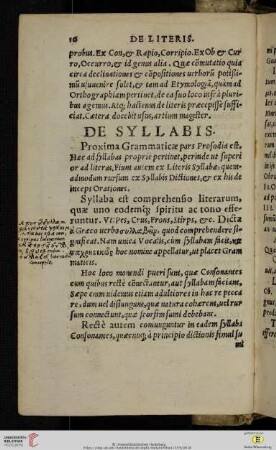 16 DE LITERIS.
probus. Ex Con, & Rapio, Corripio. Ex Ob & Cur
ro, Occurro, & id genus alia. Quæ cõmutatio quia
circa declinationes & cõpositiones uerborũ potissi
mũ usuuenire solet, & tam ad Etymologiã, quàm ad
Orthographiam pertinet, de ea suo loco infrà pluri
bus agemus. Atq; hactenus de literis præcepisse suffi
ciat. Cætera docebit usus, artium magister.
DE SYLLABIS.
Proxima Grammaticæ pars Prosodia est.
Hæc ad syllabas propriè pertinet, perinde ut superi
or ad literas. Fiunt autem ex Literis Syllabæ: quem-
admodum rursum ex Syllabis Dictiones, & ex his de
inceps Orationes.
Syllaba est comprehensio literarum,
quæ uno eodemq; spiritu ac tono effe-
runtur. Vt, Pes, Crus, Frons, Stirps, &c. Dicta
Græco uerbo συλλαβεῖν, quod comprehendere si-
gnificat. Nam unica Vocalis, cùm syllabam facit,
hoc nomine appellatur, ut placet Gram
maticis.
Hoc loco monendi pueri sunt, quæ Consonantes
cum quibus rectè cõnectantur, aut syllabam faciant.
Sæpe enim uidemus etiam adultiores in hac re pecca
re, dum uel distingunt, quæ natura cohærent, uel rur
sum connectunt, quæ seorsim suni debebant.
Rectè autem coniunguntur in eadem syllaba
Consonantes, quæcunq; à principio dictionis simul su
mi
© Universitätsbibliothek Heidelberg
UNIVERSITÄTS-BIBLIOTHEK HEIDELBERG